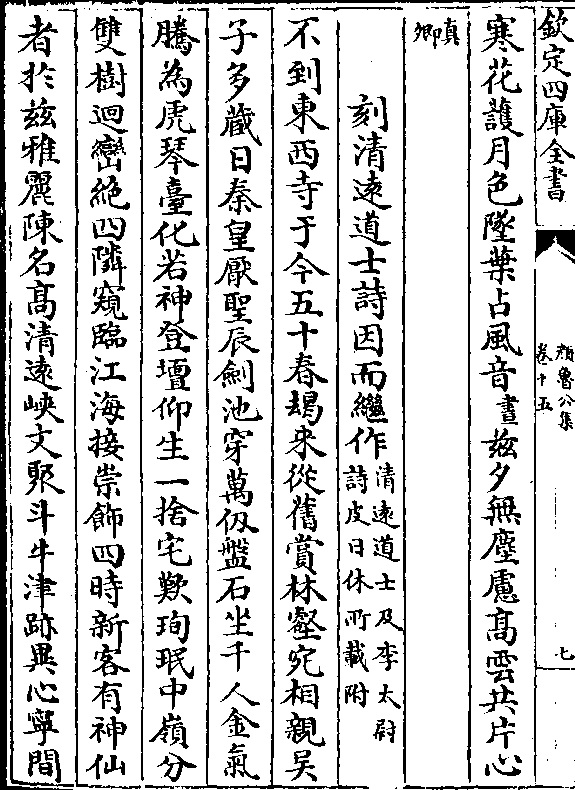 欽定四庫全書
顔魯公集
卷十五
七
寒花護月色墜葉占風音晝兹夕無塵慮髙雲共片心
真
卿
刻清逺道士詩因而繼作清逺道士及李太尉
詩皮日休所載附
不到東西寺于今五十春朅来從舊賞林壑宛相親吴
子多藏日秦皇厭聖辰劍池穿萬仭盤石坐千人金氣
騰為虎琴臺化若神登壇仰生一捨宅歎珣珉中嶺分
雙樹迴巒絶四隣窺臨江海接崇飾四時新客有神仙
者於兹雅麗陳名髙清逺峽文聚斗牛津跡異心寧間